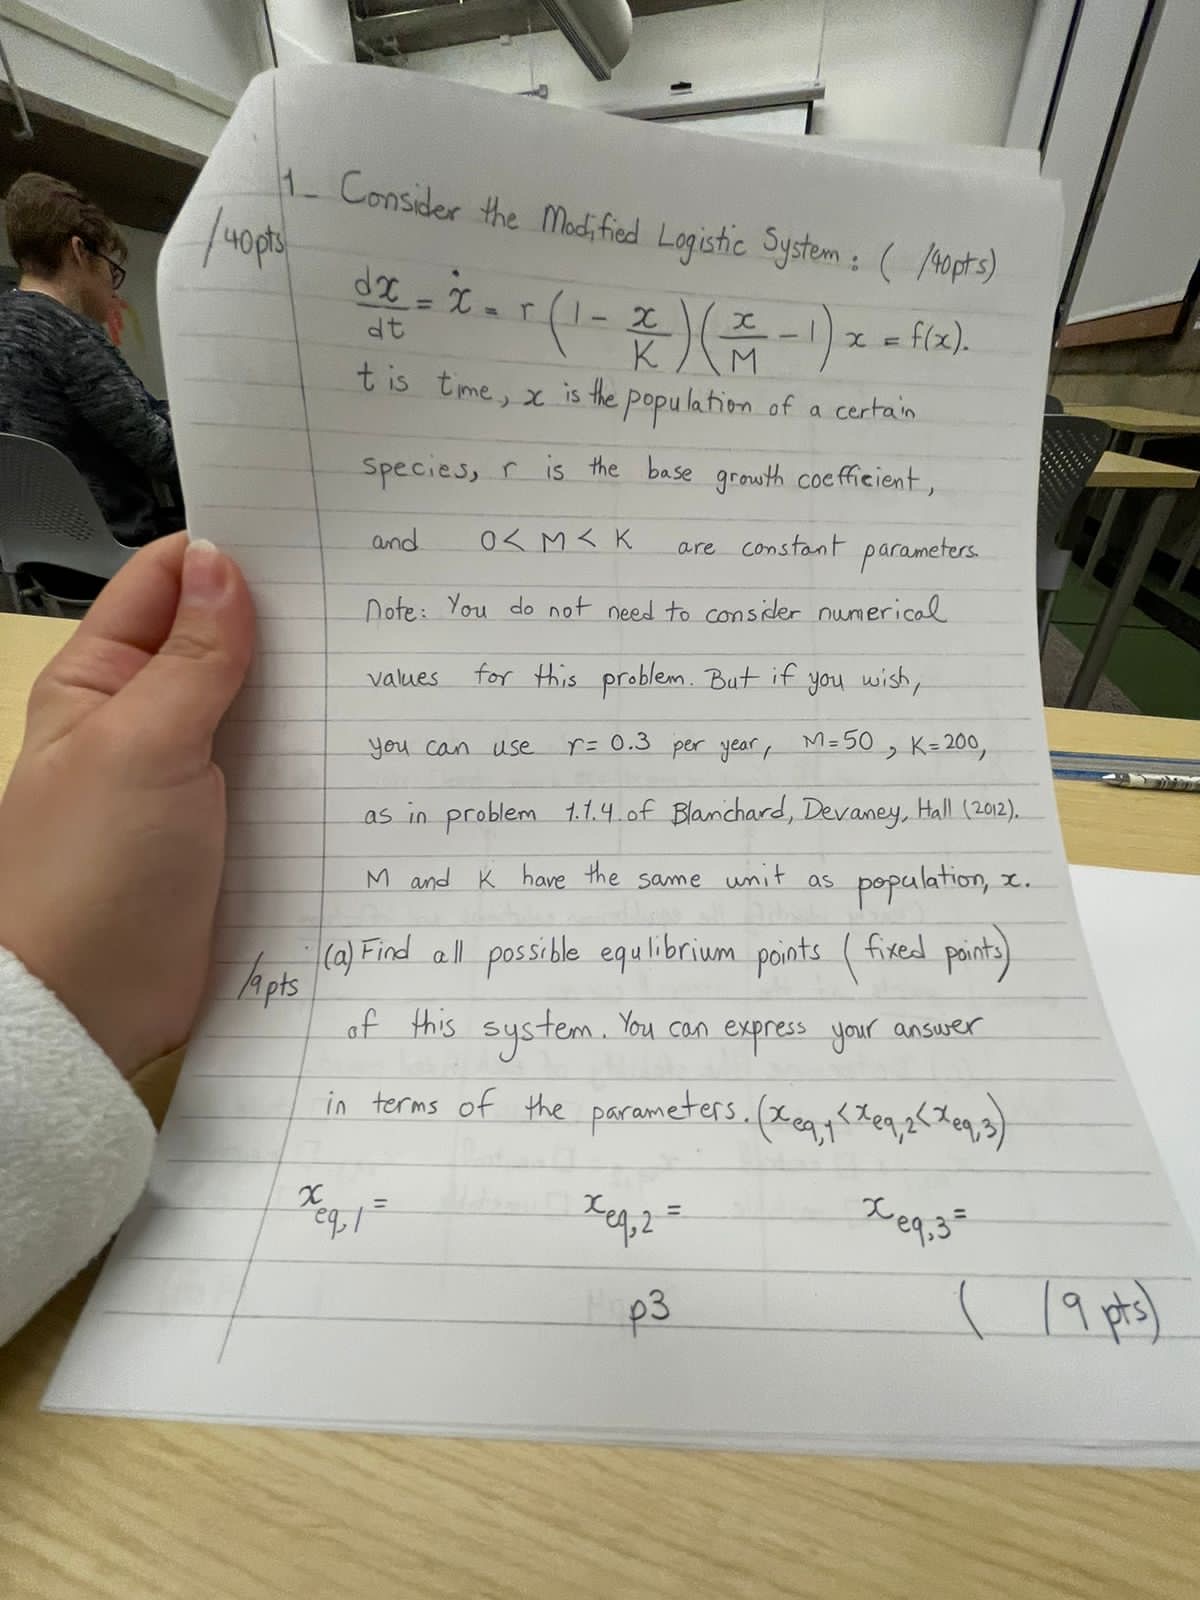 1- Consider the Modified Logistic System: ( /40pts)
/40pts
dx/dt = ẋ = r (1 - x/K)(x/M - 1) x = f(x).
t is time, x is the population of a certain
species, r is the base growth coefficient,
and 0 < M < K are constant parameters.
Note: You do not need to consider numerical
values for this problem. But if you wish,
you can use r = 0.3 per year, M = 50, K = 200,
as in problem 1.1.4 of Blanchard, Devaney, Hall (2012).
M and K have the same unit as population, x.
(a) Find all possible equlibrium points (fixed points)
/9pts
of this system. You can express your answer
in terms of the parameters. (x_eq,1 < x_eq,2 < x_eq,3)
x_eq,1 = x_eq,2 = x_eq,3 =
p3 ( /9 pts)